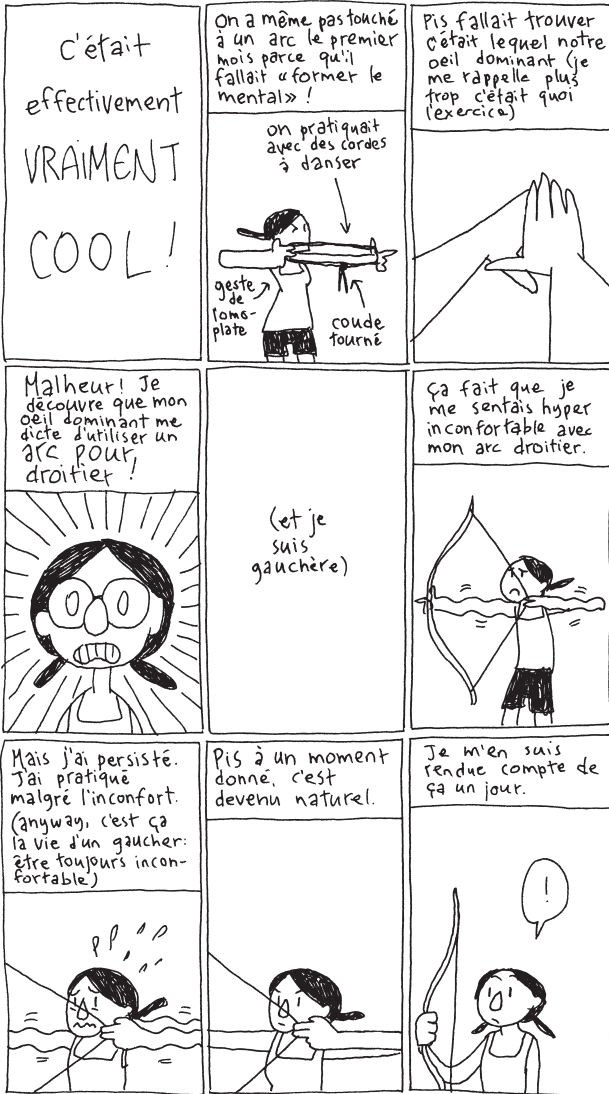 C'était
effectivement
VRAIMENT
COOL!
On a même pas touché
à un arc le premier
mois parce qu'il
fallait «former le
mental» !
on pratiquait
avec des cordes
à danser
geste
de
l'omo-
plate
coude
tourné
Pis fallait trouver
c'était lequel notre
oeil dominant (je
me rappelle plus
trop c'était quoi
l'exercice)
Malheur! Je
découvre que mon
oeil dominant me
dicte d'utiliser un
arc pour
droitier !
(et je
suis
gauchère)
Ça fait que je
me sentais hyper
inconfortable avec
mon arc droitier.
Mais j'ai persisté.
J'ai pratiqué
malgré l'inconfort.
(anyway, c'est ça
la vie d'un gaucher:
être toujours incon-
fortable)
Pis à un moment
donné, c'est
devenu naturel.
Je m'en suis
rendue compte de
ça un jour.
!